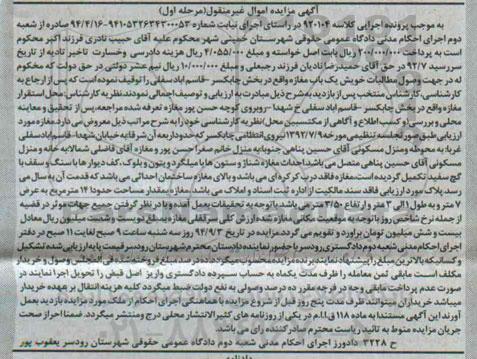 آگهی مزایده اموال غیرمنقول(مرحله اول)
به موجب پرونده اجرایی کلاسه ۹۲۰۱۰۴ در راستای اجرای نیابت شماره ۹۴۱۰۵۳۲۶۳۴۳۰۰۰۵۳-۹۴/۴/۱۶ صادره از شعبه
دوم اجرای احکام مدنی دادگاه عمومی حقوقی شهرستان خمینی شهر محکوم علیه آقای حبیب نادری فرزند اکبر محکوم
است به پرداخت ریال بابت اصل خواسته و مبلغ ۴/۰۵۵/۰۰۰ ریال هزینه دادرسی وخسارت تاخیر تادیه از تاریخ
سررسید ۹۲/۷ در حق آقای حمیدرضا نادیان فرزند رجبعلی و مبلغ ۱۰/۰۰۰/۰۰۰ ریال نیم عشر دولتی در حق دولت که محکوم
له در جهت وصول مطالبات خویش یک باب مغازه واقع در بخش چابکسر -قاسم آباد سفلی را توقیف نموده است که پس از ارجاع به
کارشناسی کارشناس منتخب پس از بازدید به شرح ذیل مبادرت به ارزیابی و توصیف اجمالی نموده نظریه کارشناس:محل استقرار
مغازه واقع در بخش چابکسر -قاسم آباد سفلی خ شهدا -روبروی کوچه حسن پور مغازه تعرفه شده مراجعه،پس از تحقیق و معاینه
محلی و بررسی و کسب اطلاع و آگاهی از مکتسبین محل؛نظریه کارشناسی خود را به شرح مراتب ذیل معروض می دارد:مغازه مورد
ارزیابی طبق صورتجلسه تنظیمی مورخه ۱۳۹۲/۷/۹ نیروی انتظامی چابکسر که حدود اربعه آن شرقا به خیابان شهدا قاسم آباد سفلی
غربا به محوطه و منزل مسکونی آقای حسین پناهی جنوبا به منزل خانم صغرا حسن پور و مغازه آقای فاضلی شمالا به خانه و منزل
مسکونی آقای حسین پناهی متصل می باشد.احداث مغازه شناژ و ستون ها با میلگرد و بتون و بلوک،کف دیوار ها با سنگ و سقف با
گچ سفید تکمیل گردیده است.مغازه فاقد درب کرکره ای می باشد و بالای مغازه ساختمان احداثی می باشد که قدمت آن به سال می
رسد پلاک مورد ارزیابی فاقد سند مالکیت از اداره ثبت اسناد و املاک می باشد.مغازه بمقدار مساحت حدودا ۱۴ مترمربع به عرض
۷ متر و طول(۱ الی ۳ متر و ارتفاع ۳/۵۰ متر می باشد.باتوجه به تحقیقات بعمل آمده و با در نظر گرفتن جمیع جهات موثر در قضیه
از جمله نرخ شاخص روز با توجه به موقعیت مکانی مغازه شده ارزش کلی سرقفلی مغازه به مبلغ دویست وشصت میلیون ریال معادل
بیست و شش میلیون تومان برآورد و تقویم می گردد.مزایده در تاریخ ۹۴/۹/۳ روز سه شنبه ساعت ۹ صبح لغایت ۱۱ صبح در دفتر
اجرای احکام مدنی شعبه دوم دادگستری رودسر با حضور نماینده دادستان محترم شهرستان رودسر قیمت پایه ارزیابی شده تشکیل
و کسانیکه بالاترین مبلغ را پیشنهاد نمایند برنده مزایده محسوب میگردد.ده درصد مبلغ فروخته شده فی المجلس وصول و خریدار
مکلف است مابقی ثمن معامله را ظرف مدت یکماه به حساب سپرده دادگستری واریز اصل فیش را تحویل اجرا نمایند در
صورت عدم پرداخت مابقی وجه در فرجه مقرر ده درصد وصولی به نفع دولت ضبط میگردد کلیه هزینه انتقال بر عهده خریدار
میباشد خریداران میتوانند ظرف مدت پنج روز قبل از شروع مزایده با هماهنگی اجرای احکام از ملک مورد مزایده بازدید بعمل
آورند این آگهی مستندا به ماده ۱۱۸ ق.ا.م در یکی از روزنامه های کثیرالانتشار محلی درج ومنتشر میگردد.ضمنا احراز صحت
جریان مزایده منوط به تائید ریاست محترم صادرکننده رای می باشد.
ح ۳۲۲۸ دادورز اجرای احکام مدنی شعبه دوم دادگاه عمومی حقوقی شهرستان رودسر یعقوب پور